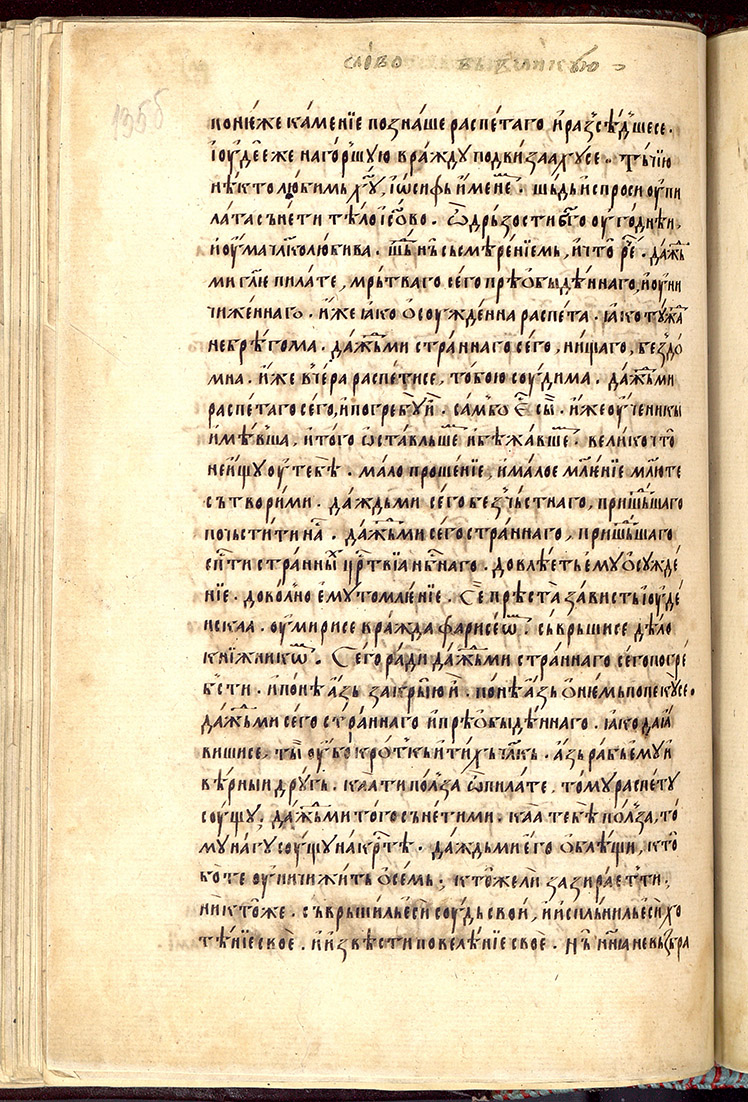 слово въ великую
135б
понеже камение познаше распетаго, и разседшесе.
Іоудее же на горшую вражду подвизаахусе. Тъчию
некто любимь хꙋ, іѡсифь именемь. шьдь испроси оу пи
лата сънети тело ісово. ѿ дрьзости бго оугодніи,
и оума члколюбива. нь съ смерениемь, и что рече. даждь
ми глше пилате, мрьтваго сего преѡбыденнаго, и оуни
чиженнаго. иже іако ѡсоужденна распета. іако тужда
небрегома. даждь ми страннаго сего, нищаго, бездо
мна. иже вчера распетисе, тобою соудима. даждь ми
распетаго сего, и погребуи. самь бо есть сыи. иже оученикы
имевша, и того ѡставльшемь и бежавшемь. велико что
не ищу оу тебе. мало прошение, и малое млѥние млю те
сътвори ми. даждь ми сего бечьстнаго, пришьдшаго
почьстити насъ. даждь ми сего страннаго, пришьдшаго
спсти странныхъ цртвіа нбнаго. довлеетъ ему ѡсужде
ние. доволно ему томлѥние. Се преста зависть іоуде
искаа. оумирисе вражда фарисеѡмь. съврьшисе дело
книжникѡмь. Сего ради даждь ми страннаго сего погре
бсти. и поне азь закрыю и. поне азь ѡ нѥмь попекусе.
даждь ми сего страннаго и преѡбыденнаго. іако даіа
вишисе, ты оубо кроткъ и тихъ члкъ. азь рабь ему и
верныи другь. каа ти полза ѿ пилате, тому распету
соущу, даждь ми того сънети ми. каа тебе полза, то
му нагу соущу на крте. даждь ми его ѡблещи, кто
бо те оуничижить ѡ семь; кто же ли зазираеть ти;
никтоже. съврьшиль еси соудь свои, и испльниль еси хо
тение свое. и извести повелѥние свое.